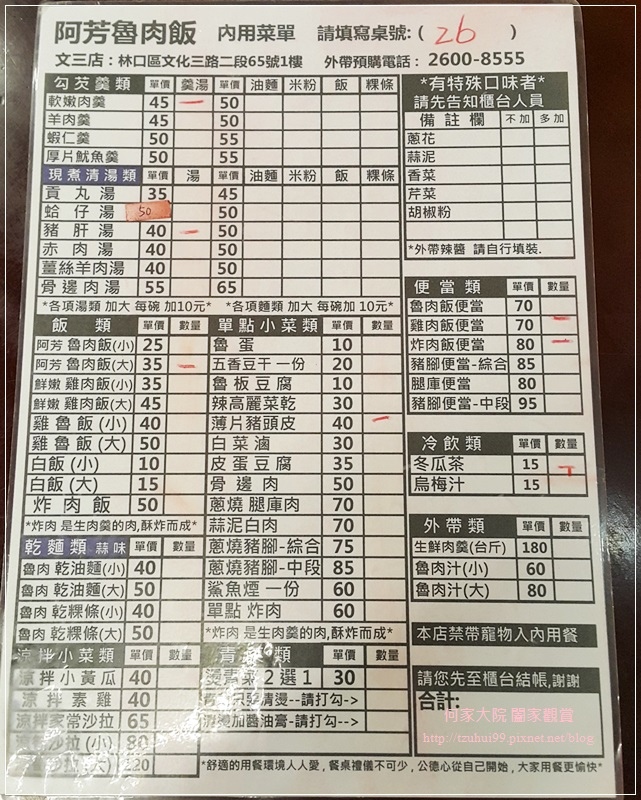 阿芳魯肉飯 內用菜單 請填寫桌號:( 26 )
文三店：林口區文化三路二段65號1樓 外帶預購電話： 2600-8555
勾芡羹類 單價 羹湯 單價 油麵 米粉 飯 粿條
軟嫩肉羹 45 一 50
羊肉羹 45 50
蝦仁羹 50 55
厚片魷魚羹 50 55
現煮清湯類 單價 湯 單價 油麵 米粉 飯 粿條
貢丸湯 35 45
蛤仔湯 50 50
豬肝湯 40 一 50
赤肉湯 40 50
薑絲羊肉湯 40 50
骨邊肉湯 55 65
*各項湯類 加大 每碗 加10元* *各項麵類 加大 每碗加10元*
飯類 單價 數量
阿芳 魯肉飯(小) 25
阿芳 魯肉飯(大) 35 一
鮮嫩 雞肉飯(小) 35
鮮嫩 雞肉飯(大) 45
雞魯飯(小) 40
雞魯飯(大) 50
白飯(小) 10
白飯(大) 15
炸肉飯 50
*炸肉 是生肉羹的肉,酥炸而成*
乾麵類 蒜味 單價 數量
魯肉 乾油麵(小) 40
魯肉 乾油麵(大) 50
魯肉 乾粿條(小) 40
魯肉 乾粿條(大) 50
涼拌小菜類 單價 數量
涼拌小黃瓜 40
涼拌素雞 40
涼拌家常沙拉 65
沙拉(小) 80
沙拉(大) 120
單點小菜類 單價 數量
魯蛋 10
五香豆干一份 20
魯板豆腐 10
辣高麗菜乾 30
薄片豬頭皮 40 一
白菜滷 30
皮蛋豆腐 35
骨邊肉 50
蔥燒 腿庫肉 70
蒜泥白肉 70
蔥燒豬腳-綜合 75
蔥燒豬腳-中段 85
鯊魚煙 一份 60
單點 炸肉 60
*炸肉 是生肉羹的肉,酥炸而成*
青 類 單價 數量
燙青菜2選1 30
清燙--請打勾-->
加醬油膏-請打勾->
*有特殊口味者*
請先告知櫃台人員
備註欄 不加 多加
蔥花
蒜泥
香菜
芹菜
胡椒粉
*外帶辣醬 請自行填裝.
便當類 單價 數量
魯肉飯便當 70
雞肉飯便當 70 一
炸肉飯便當 80 一
豬腳便當-綜合 85
腿庫便當 80
豬腳便當-中段 95
冷飲類 單價 數量
冬瓜茶 15
烏梅汁 15
外帶類 單價 數量
生鮮肉羹(台斤) 180
魯肉汁(小) 60
魯肉汁(大) 80
本店禁帶寵物入內用餐
請您先至櫃台結帳,謝謝
合計:
阿家大院 闔家觀賞
http://tzuhui99.pixnet.net/blog
*舒適的用餐環境人人愛,餐桌禮儀不可少,公德心從自己開始,大家用餐更愉快*